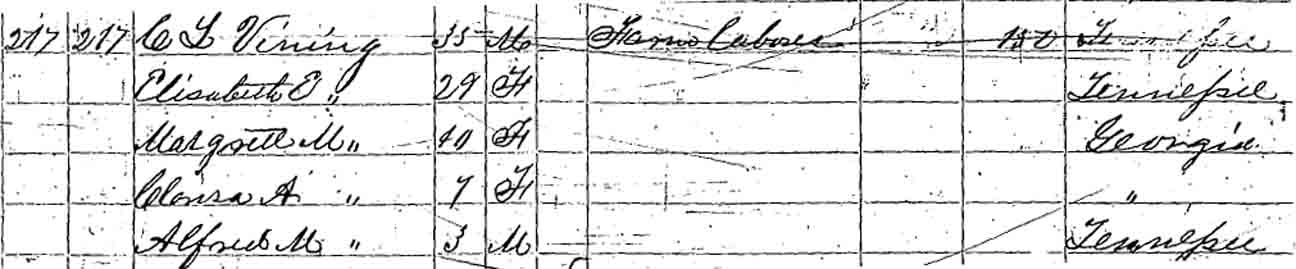 217 217 C L Vining 35 M Farm Laborer " 150 Tennessee
Elisabeth E " 29 F " Tennessee
Margrett M " 10 F Georgia
A " 7 F "
Alfred M " 3 M Tennessee